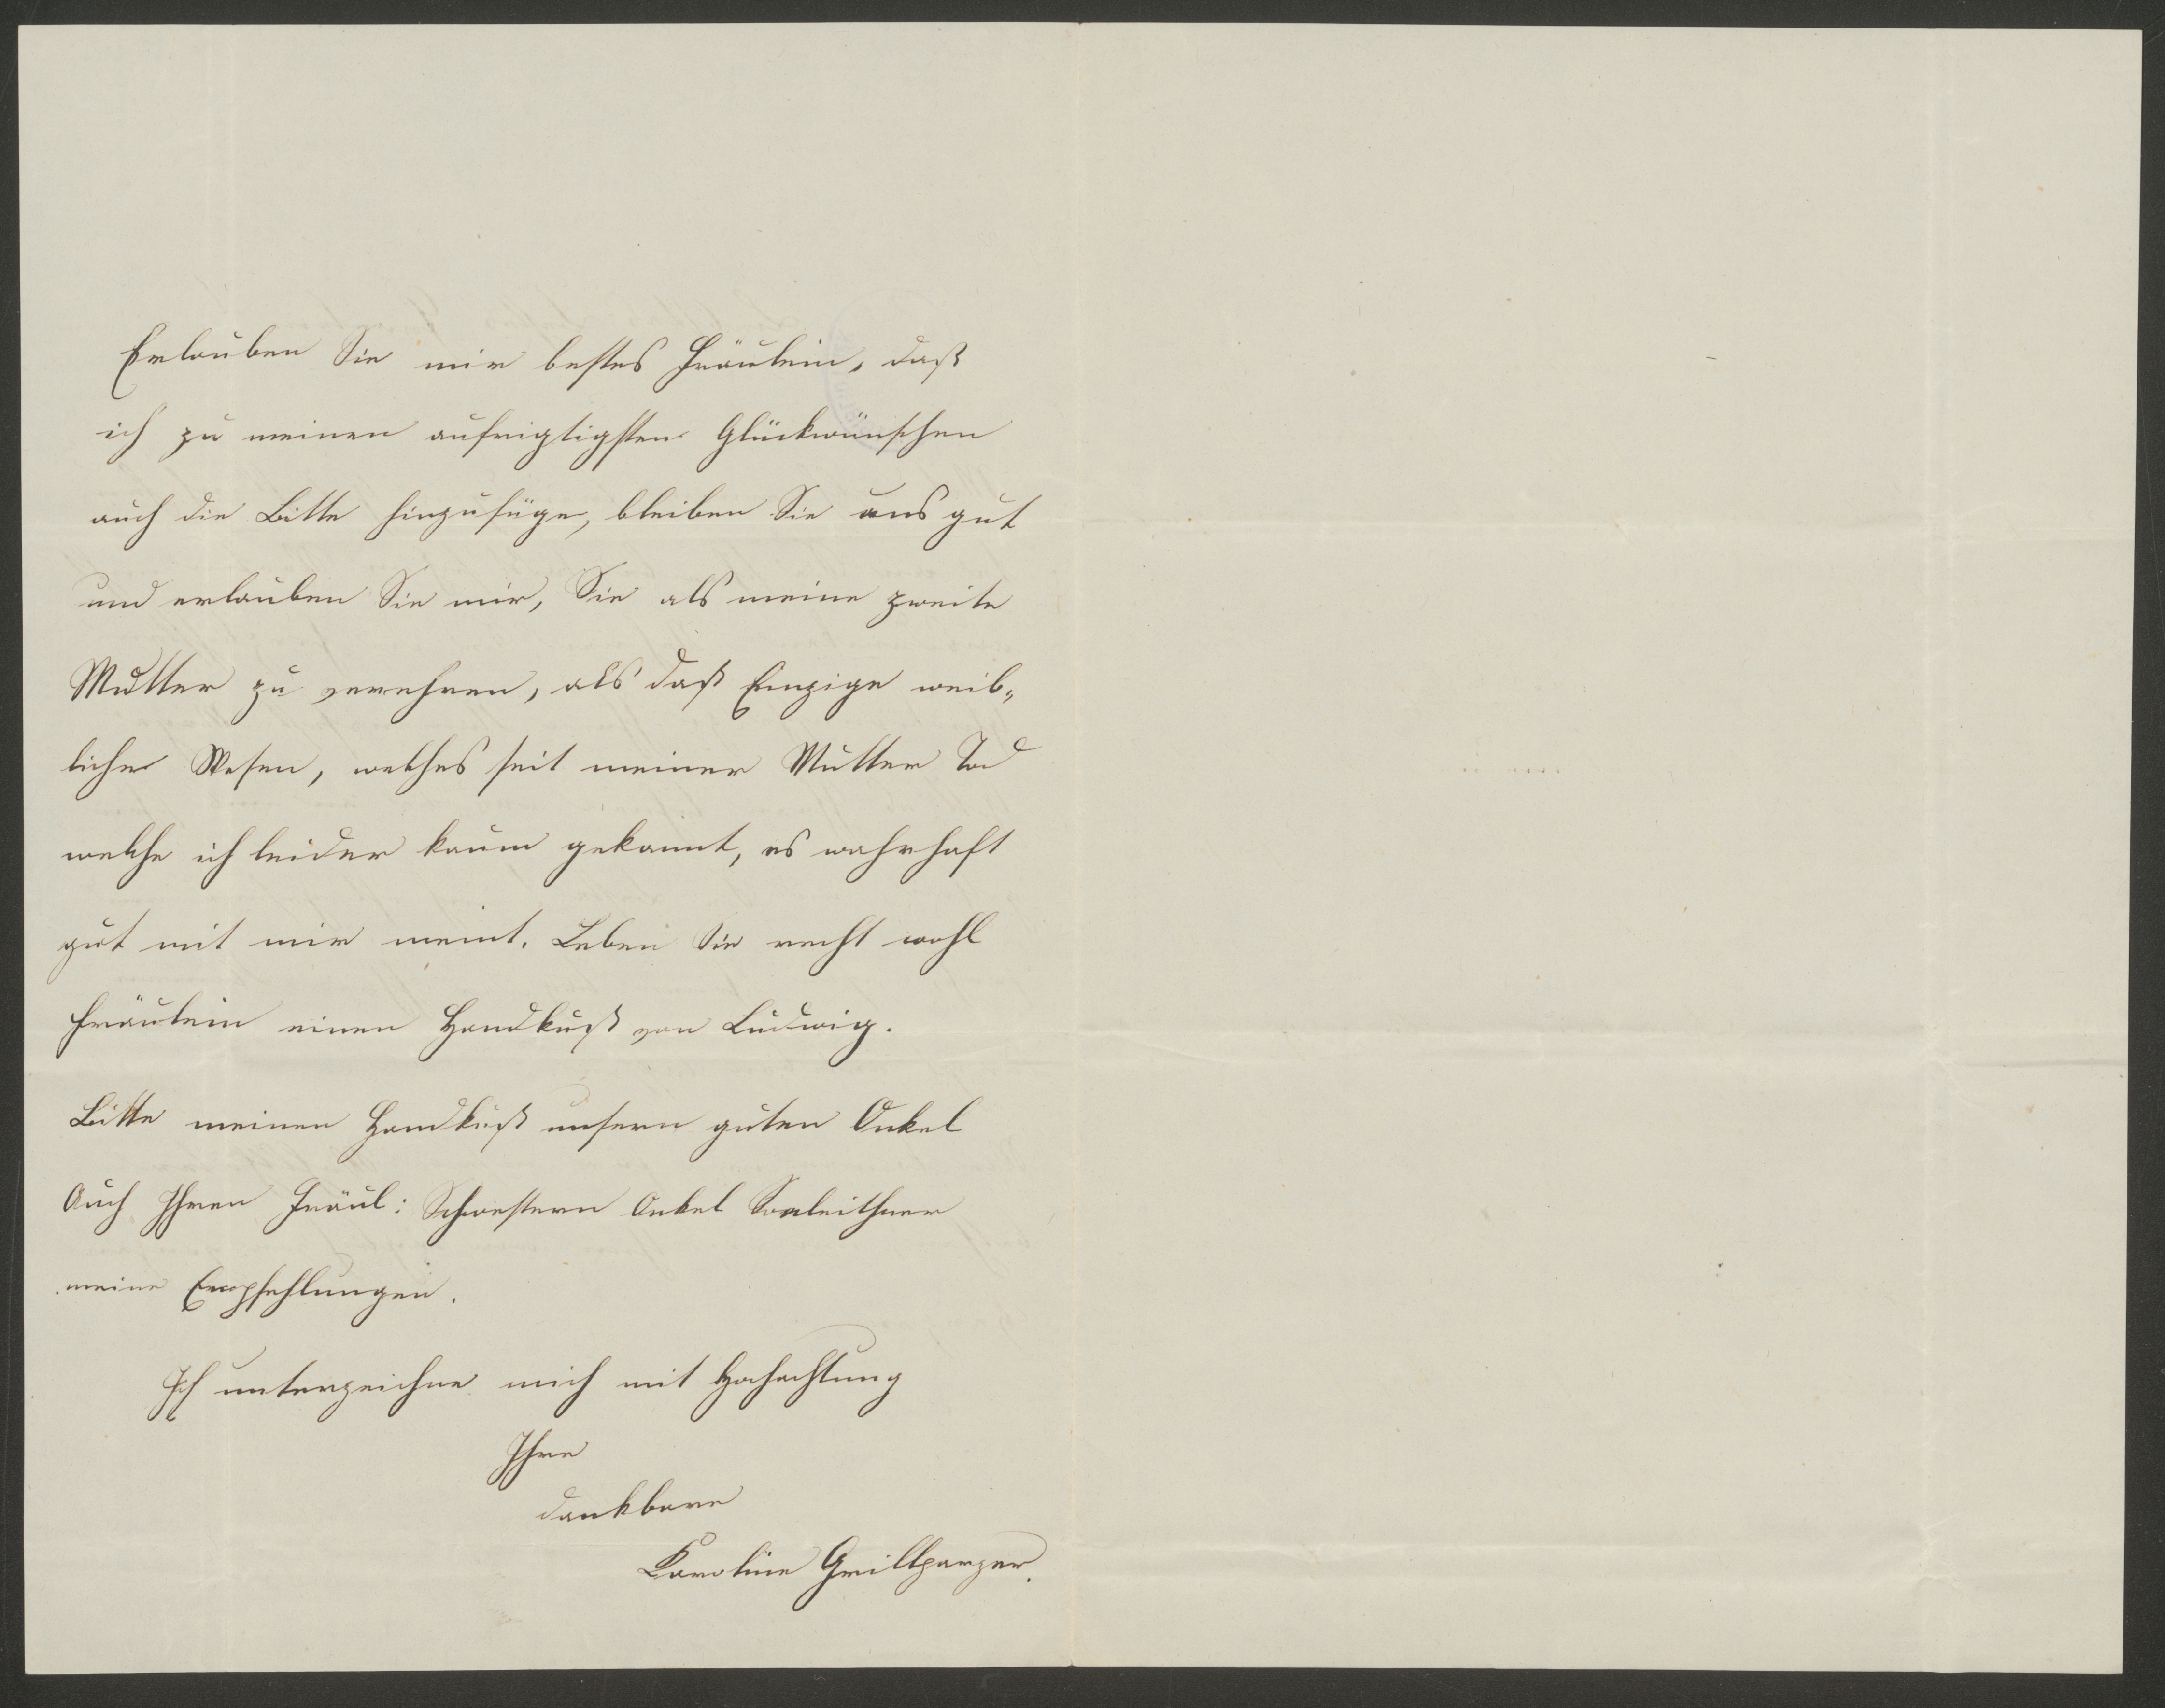 Erlauben Sie mir bestes Fräulein, daß
ich zu meinen aufrigtigsten Glückwünschen
auch die Bitte hinzufüge, bleiben Sie uns gut
und erlauben Sie mir, Sie als meine zweite
Mutter zu verehren, als daß Einzige weib„
liche Wesen, welches seit meiner Mutter Tod
welche ich leider kaum gekannt, es wahrhaft
gut mit mir meint. Leben Sie recht wohl
Fräulein einen Handkuß von Ludwig.
Bitte meinen Handkuß unsern guten Onkel
Auch Ihren Fräul: Schwestern Onkel Sonleithner
meine Empfehlungen.
Ich unterzeichne mich mit Hochachtung
Ihre
dankbare
Karoline Grillparzer.